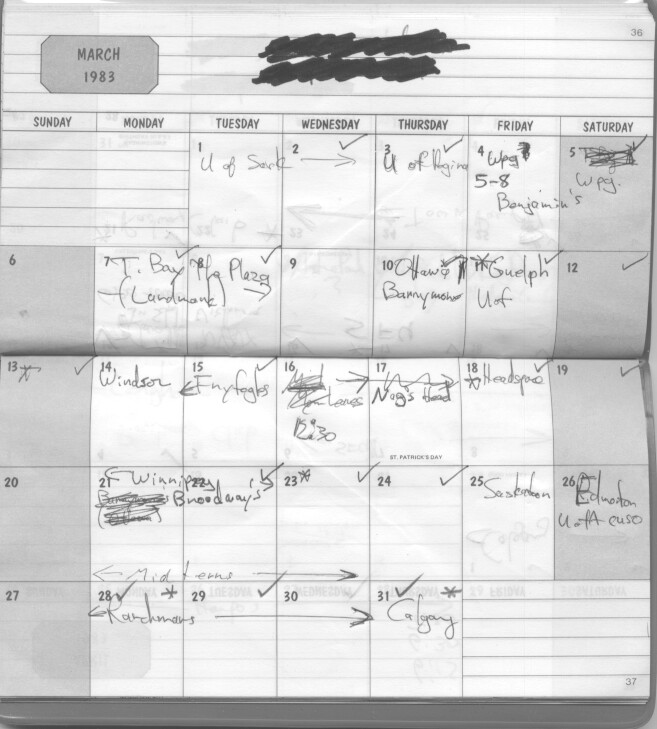 36
MARCH
1983
SUNDAY MONDAY TUESDAY WEDNESDAY THURSDAY FRIDAY SATURDAY
1 2 3 4 5
U of Sask U of Regina Wpg
5-8 Wpg.
Benjamin's
6 7 8 9 10 11 12
T. Bay Plaza Ottawa Guelph
(Landmark) Barrymore U of
13 14 15 16 17 18 19
Windsor Fryfogles Nag's Head Headspace
12:30
ST. PATRICK'S DAY
20 21 22 23 24 25 26
Winnipeg Saskatoon Edmonton
Broadway's U of A CUSO
Mid terms
27 28 29 30 31
Ranchmans Calgary
37